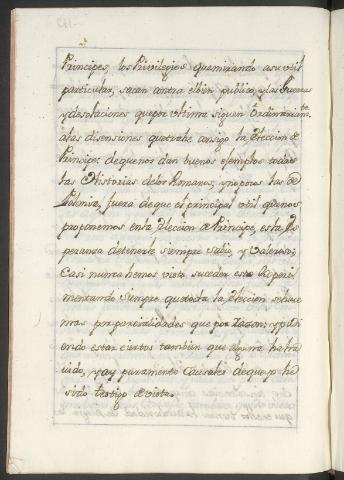 Principes, los Privilegios que mirando a su vtil
particular, sacan contra el bien publico, y las Guerras
y desolaciones que por vltima siguen Ordinariam.te
a las disensiones que trahe consigo la Eleccion de
Principes de que nos dan buenos exemplos todas
las Historias de los Romanos, y no pocos las de
Polonia, fuera de que el principal vtil que nos
proponemos en la Eleccion de Principe, esta Es
peranza de tenerle siempre sabio, y Valeroso;
Casi nunca hemos visto suceder esto Experi
mentando siempre que toda la Eleccion se hace
mas por parcialidades que por Razon; y pudi
endo estar ciertos tambien que alguna ha havido
vido, y ay puramente Causales de que yo he
sido testigo de vista.